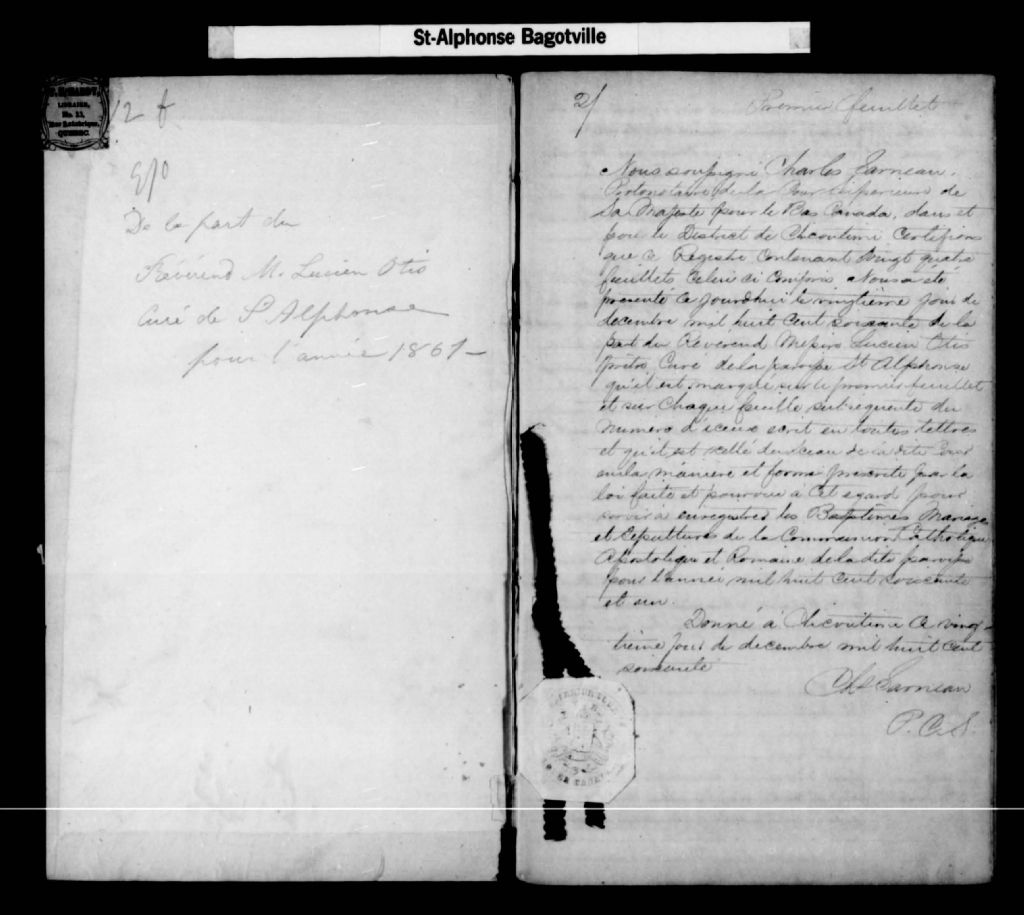 St-Alphonse Bagotville
LIBRAIRE,
No. 11,
QUEBEC.
12 f
De la part du
Révérend M. Lucien Otis
Curé de St Alphonse
pour l'année 1861
2/
Premier feuillet
Nous soussigné Charles Garneau,
Protonotaire de la Cour Supérieure de
Sa Majesté pour le Bas Canada, dans et
pour le District de Chicoutimi Certifions
que ce Registre Contenant Vingt quatre
feuillets Celui ci Compris Nous a été
présenté Ce jourdhui le vingtième jour de
decembre mil huit Cent soixante de la
part du Révérend Messire Lucien Otis
Prêtre, Curé de la paroisse St Alphonse
qu'il est marqué sur le premier feuillet
et sur Chaque feuille subséquente du
numero d'iceux ecrit en toutes lettres
et qu'il est scellé du sceau de la dite Cour
en la manière et forme prescrite par la
loi faite et pourvue à Cet egard pour
servir à enregistrer les Baptêmes Mariages
et Sépultures de la Communion Catholique
Apostolique et Romaine de la dite paroisse
pour l'année mil huit Cent soixante
et un.
Donné à Chicoutimi Ce ving-
tième jour de decembre mil huit Cent
soixante
Chs Garneau
P.C.S.